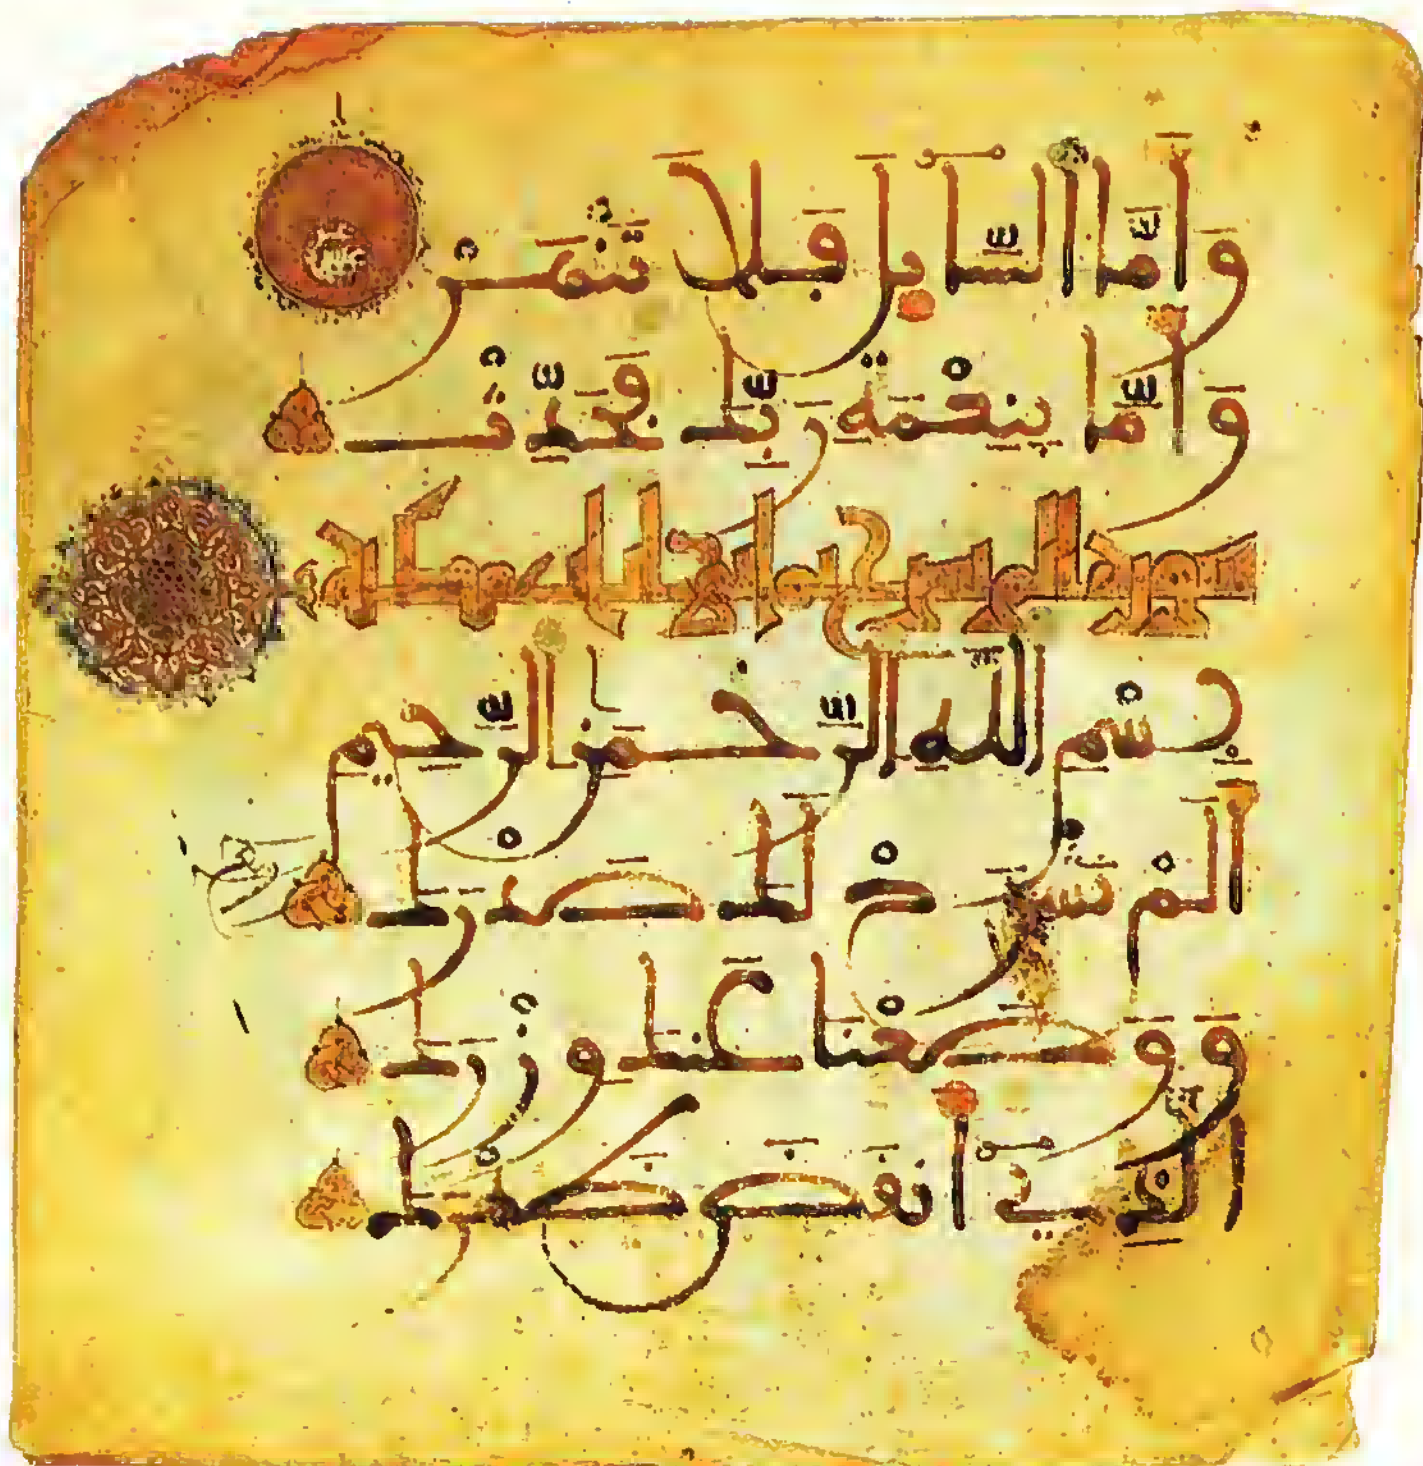 وَأَمَّا اَلسَّآئِلَ فَلَا تَنْهَرْ
وَأَمَّا بِنِعْمَةِ رَبِّكَ فَحَدِّثْ
سورة الم نشرح ثماني ايات مكية
بِسْمِ اللَّهِ الرَّحْمَٰنِ الرَّحِيمِ
أَلَمْ نَشْرَحْ لَكَ صَدْرَكَ
وَوَضَعْنَا عَنكَ وِزْرَكَ
الَّذِيٓ أَنقَضَ ظَهْرَكَ